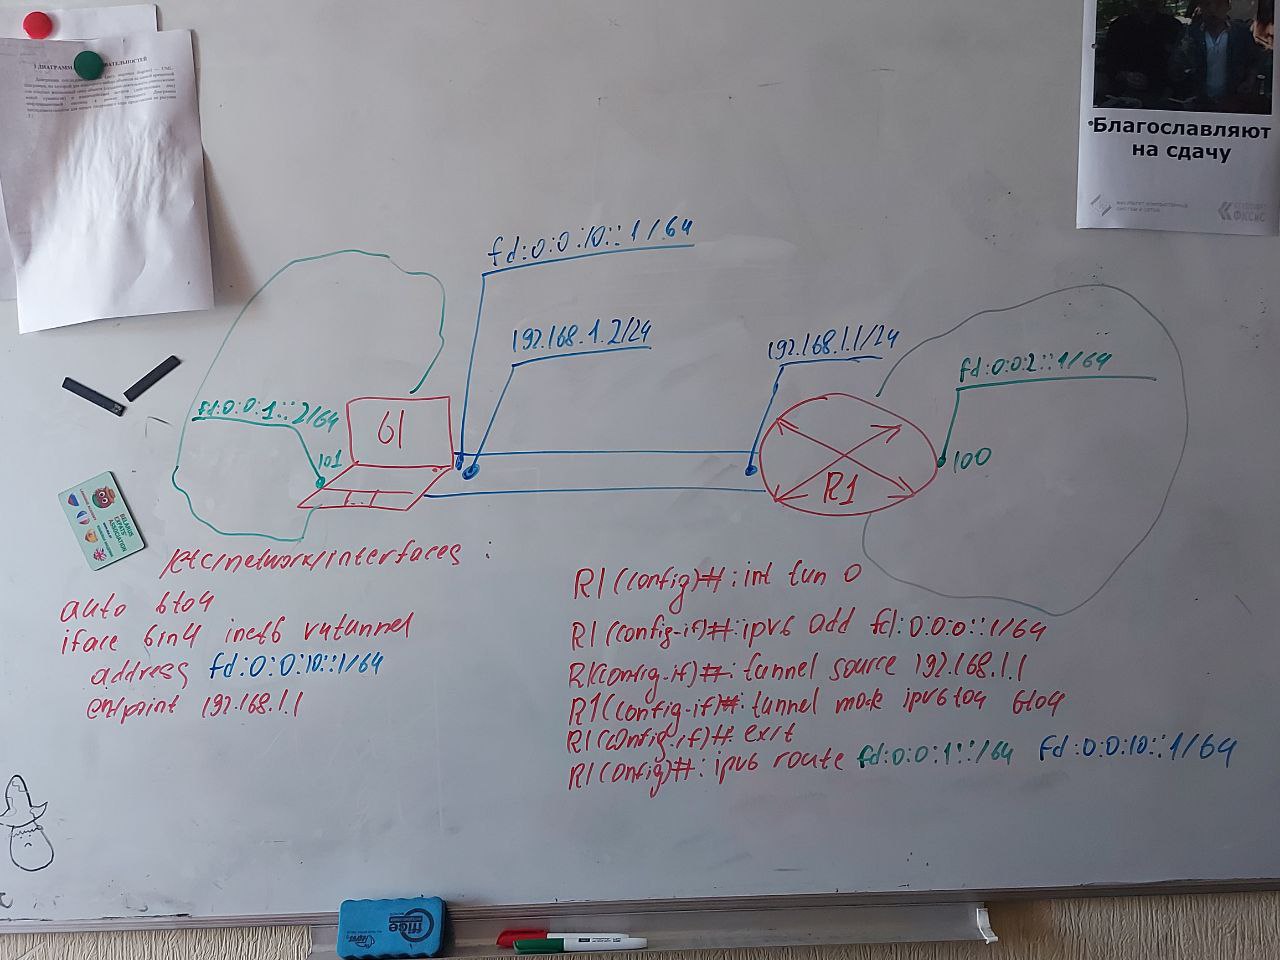 Благославляют
на сдачу
fd:0:0:10::1/64
192.168.1.2/24
192.168.1.1/24
fd:0:0:2::1/64
fd:0:0:1::2/64
101
61
R1
100
BELARUS
EXPATS'
ASSOCIATION
/etc/network/interfaces :
auto 6to4
iface 6in4 inet6 v4tunnel
address fd:0:0:10::1/64
endpoint 192.168.1.1
R1(config)#:int tun 0
R1(config-if)#:ipv6 add fd:0:0:0::1/64
R1(config-if)#: tunnel source 192.168.1.1
R1(config-if)#:tunnel mode ipv6to4 6to4
R1(config-if)#: exit
R1(config)#: ipv6 route fd:0:0:1::/64 fd:0:0:10::1/64
Office